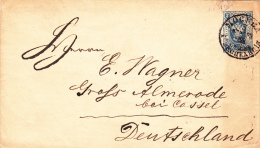 Herrn
E. Wagner
Gross Almerode
bei Cassel
Deutschland